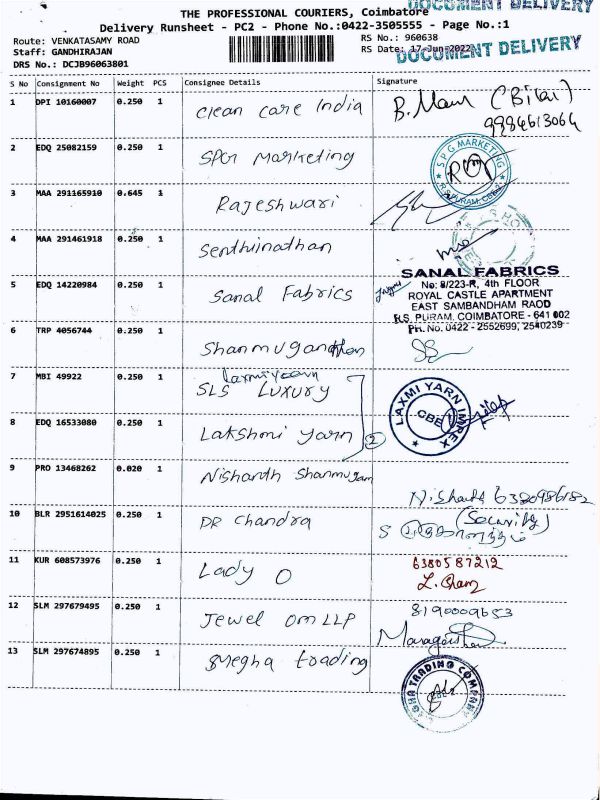 THE PROFESSIONAL COURIERS, Coimbatore
DOCUMENT DELIVERY
Delivery Runsheet - PC2 - Phone No.:0422-3505555 - Page No.:1
Route: VENKATASAMY ROAD
RS No.: 960638
Staff: GANDHIRAJAN
RS Date: 17-Jun-2022
DOCUMENT DELIVERY
DRS No.: DCJB96063801
S No Consignment No Weight PCS Consignee Details Signature
1 DPI 10160007 0.250 1 Clean Care India
(Bilal)
9984613064
2 EDQ 25082159 0.250 1 SPG Marketing
SPG MARKETING
R.S.PURAM, CBE-2
3 MAA 291165910 0.645 1 Rajeshwari
4 MAA 291461918 0.250 1 Senthinathan
5 EDQ 14220984 0.250 1 Sanal Fabrics
SANAL FABRICS
No: 8/223-R, 4th FLOOR
ROYAL CASTLE APARTMENT
EAST SAMBANDHAM RAOD
R.S. PURAM, COIMBATORE - 641 002
PH. No. 0422 - 2552699, 2540239
6 TRP 4056744 0.250 1 Shanmuganathan
7 MBI 49922 0.250 1 SLS LUXURY
LAXMI YARN IMPEX
CBE
8 EDQ 16533080 0.250 1 Lakshmi Yarn
2
9 PRO 13468262 0.020 1 Nishanth Shanmugam
Nishanth 6380986182
10 BLR 2951614025 0.250 1 DR Chandra
(Security)
11 KUR 608573976 0.250 1 Lady O
6380587212
12 SLM 297679495 0.250 1 Jewel Om LLP
8190009653
13 SLM 297674895 0.250 1 Megha trading
MEGHA TRADING COMPANY